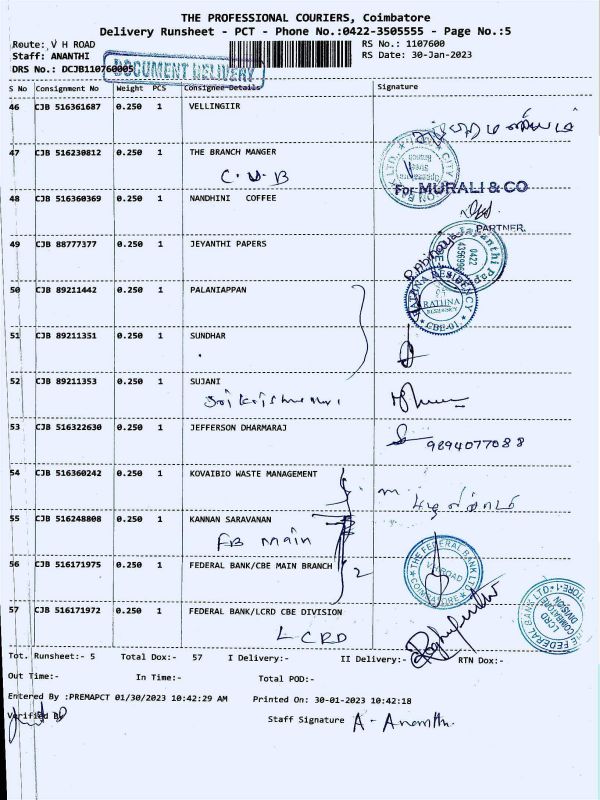 THE PROFESSIONAL COURIERS, Coimbatore
Delivery Runsheet - PCT - Phone No.:0422-3505555 - Page No.:5
Route: V H ROAD RS No.: 1107600
Staff: ANANTHI RS Date: 30-Jan-2023
DRS No.: DCJB110760005
DOCUMENT DELIVERY
S No Consignment No Weight PCS Consignee Details Signature
46 CJB 516361687 0.250 1 VELLINGIIR
47 CJB 516230812 0.250 1 THE BRANCH MANGER
C.U.B
For MURALI & CO
48 CJB 516360369 0.250 1 NANDHINI COFFEE
PARTNER.
49 CJB 88777377 0.250 1 JEYANTHI PAPERS
50 CJB 89211442 0.250 1 PALANIAPPAN
RATHNA RESIDENCY
RATHNA
RESIDENCY
CBE-01
51 CJB 89211351 0.250 1 SUNDHAR
52 CJB 89211353 0.250 1 SUJANI
53 CJB 516322630 0.250 1 JEFFERSON DHARMARAJ
9894077088
54 CJB 516360242 0.250 1 KOVAIBIO WASTE MANAGEMENT
55 CJB 516248808 0.250 1 KANNAN SARAVANAN
FB main
56 CJB 516171975 0.250 1 FEDERAL BANK/CBE MAIN BRANCH
2
THE FEDERAL BANK LTD
V.H.ROAD
COIMBATORE
57 CJB 516171972 0.250 1 FEDERAL BANK/LCRD CBE DIVISION
LCRD
THE FEDERAL BANK LTD
LCRD
COIMBATORE
DIVISION
Tot. Runsheet:- 5 Total Dox:- 57 I Delivery:- II Delivery:- RTN Dox:-
Out Time:- In Time:- Total POD:-
Entered By :PREMAPCT 01/30/2023 10:42:29 AM Printed On: 30-01-2023 10:42:18
Verified By Staff Signature A. Ananthi.